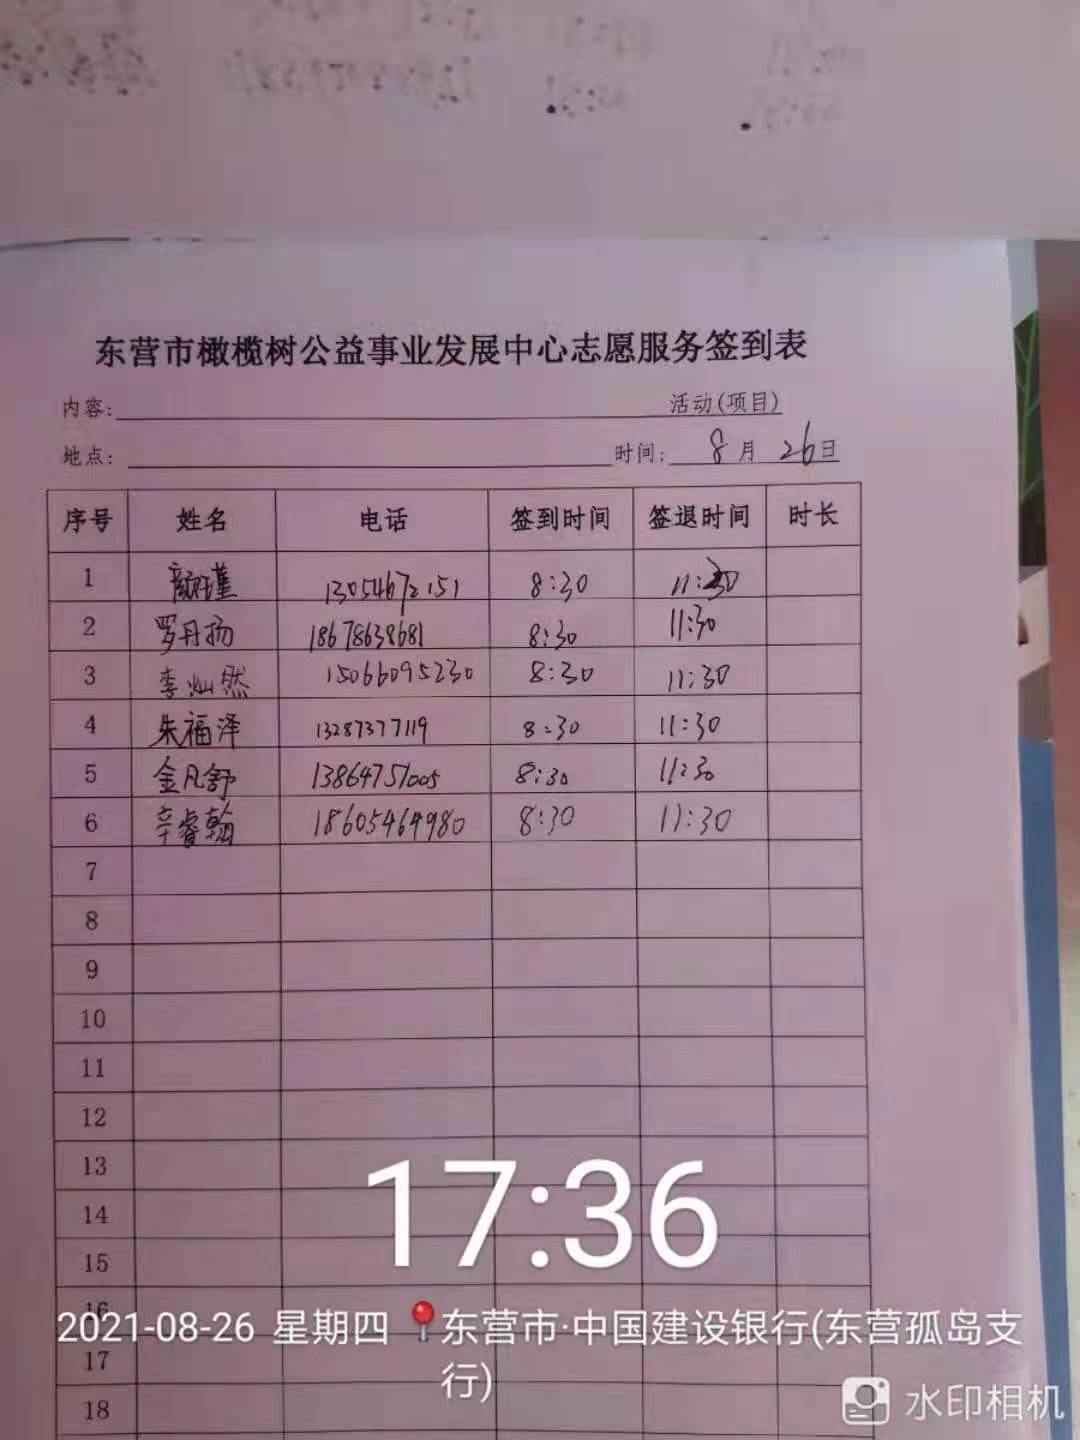 东营市橄榄树公益事业发展中心志愿服务签到表
内容: 活动(项目)
地点: 时间: 8月26日
序号 姓名 电话 签到时间 签退时间 时长
1 颜瑾 13054672151 8:30 11:30
2 罗丹扬 18678638681 8:30 11:30
3 李灿然 15066095230 8:30 11:30
4 朱福泽 13287377119 8:30 11:30
5 金凡舒 13864751005 8:30 11:30
6 辛睿翰 18605464980 8:30 11:30
7
8
9
10
11
12
13
14
15
16
17
18
17:36
2021-08-26 星期四 东营市·中国建设银行(东营孤岛支
行)
水印相机